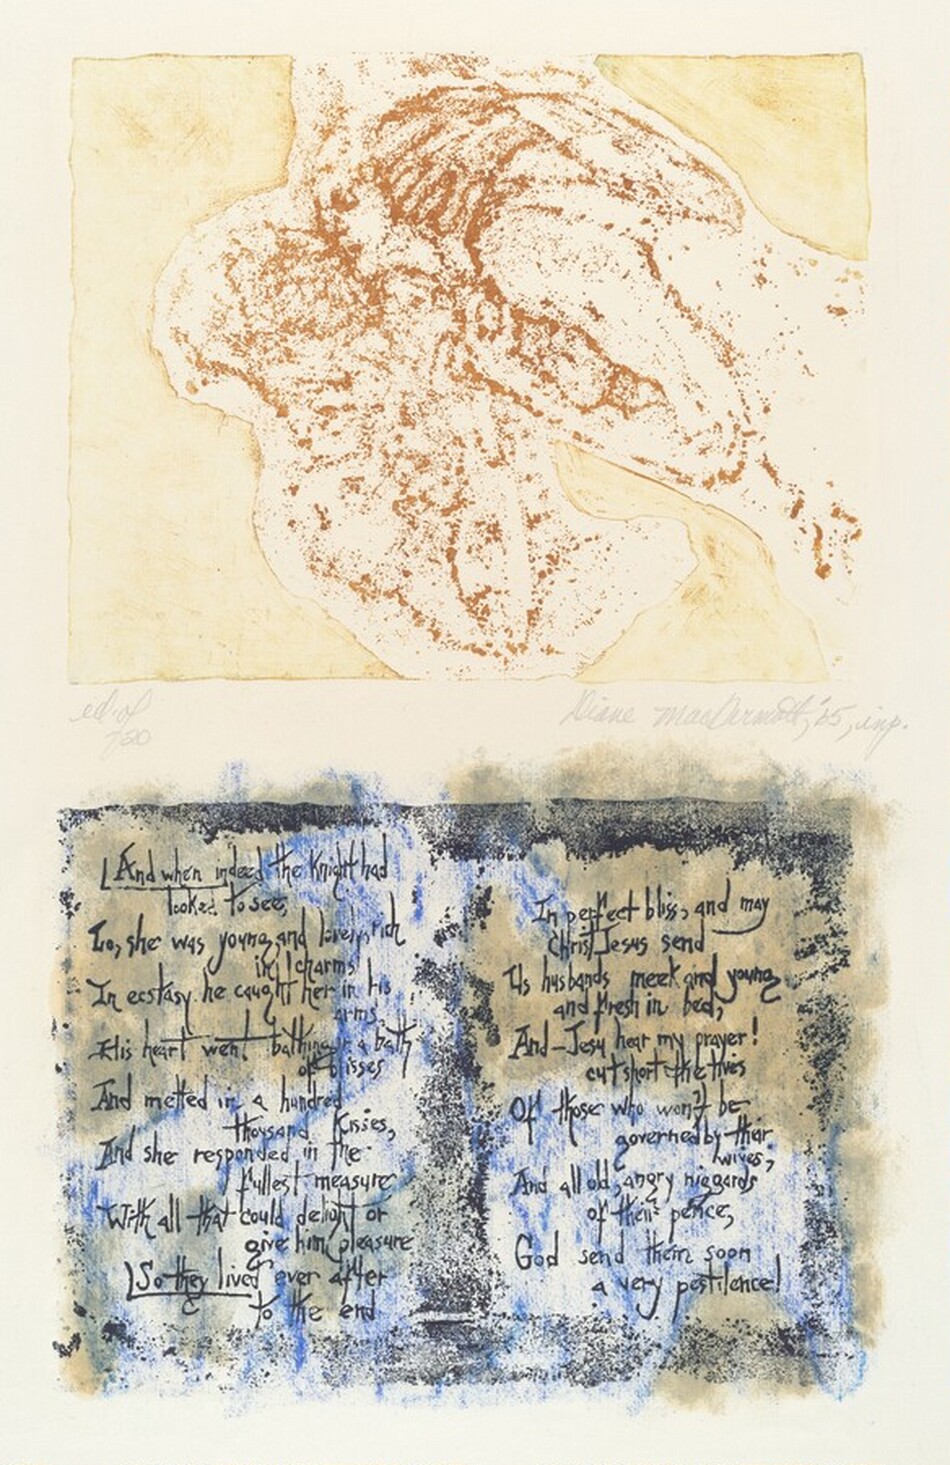 ed. of
/50
Diane MacDermott, '65, imp.
And when indeed the Knight had
looked to see,
Lo, she was young and lovely, rich
in charms
In ecstasy he caught her in his
arms
His heart went bathing in a bath
of blisses
And melted in a hundred
thousand kisses,
And she responded in the
fullest measure
With all that could delight or
give him pleasure
So they lived ever after
to the end
In perfect bliss, and may
Christ Jesus send
Us husbands meek and young
and fresh in bed,
And—Jesu hear my prayer!
cut short the lives
Of those who won't be
governed by their
wives;
And all old, angry niggards
of their pence,
God send them soon
a very pestilence!